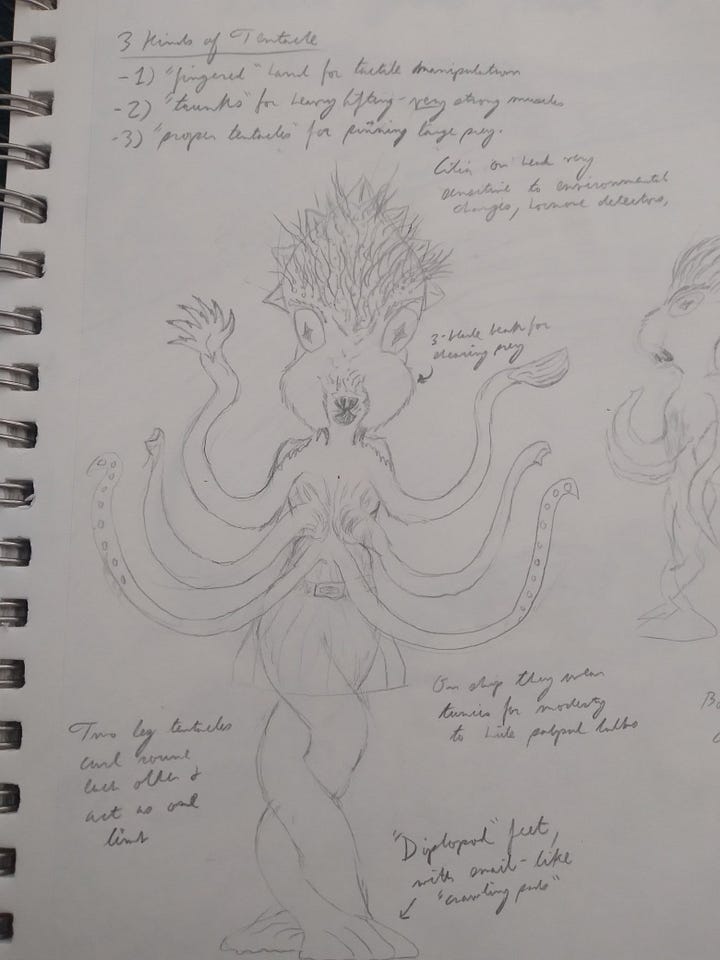 3 Kinds of Tentacle
-1) "fingered" hand for tactile manipulation
-2) "trunks" for heavy lifting - very strong muscles
-3) "proper tentacles" for pinning large prey.
Cilia on head very
sensitive to environmental
changes, hormone detectors,
3-blade beak for
shearing prey
On ship they wear
tunics for modesty
to hide palpal bulbs
Two leg tentacles
curl round
each other &
act as one
limb
"Diplopod" feet,
with snail-like
"crawling pads"